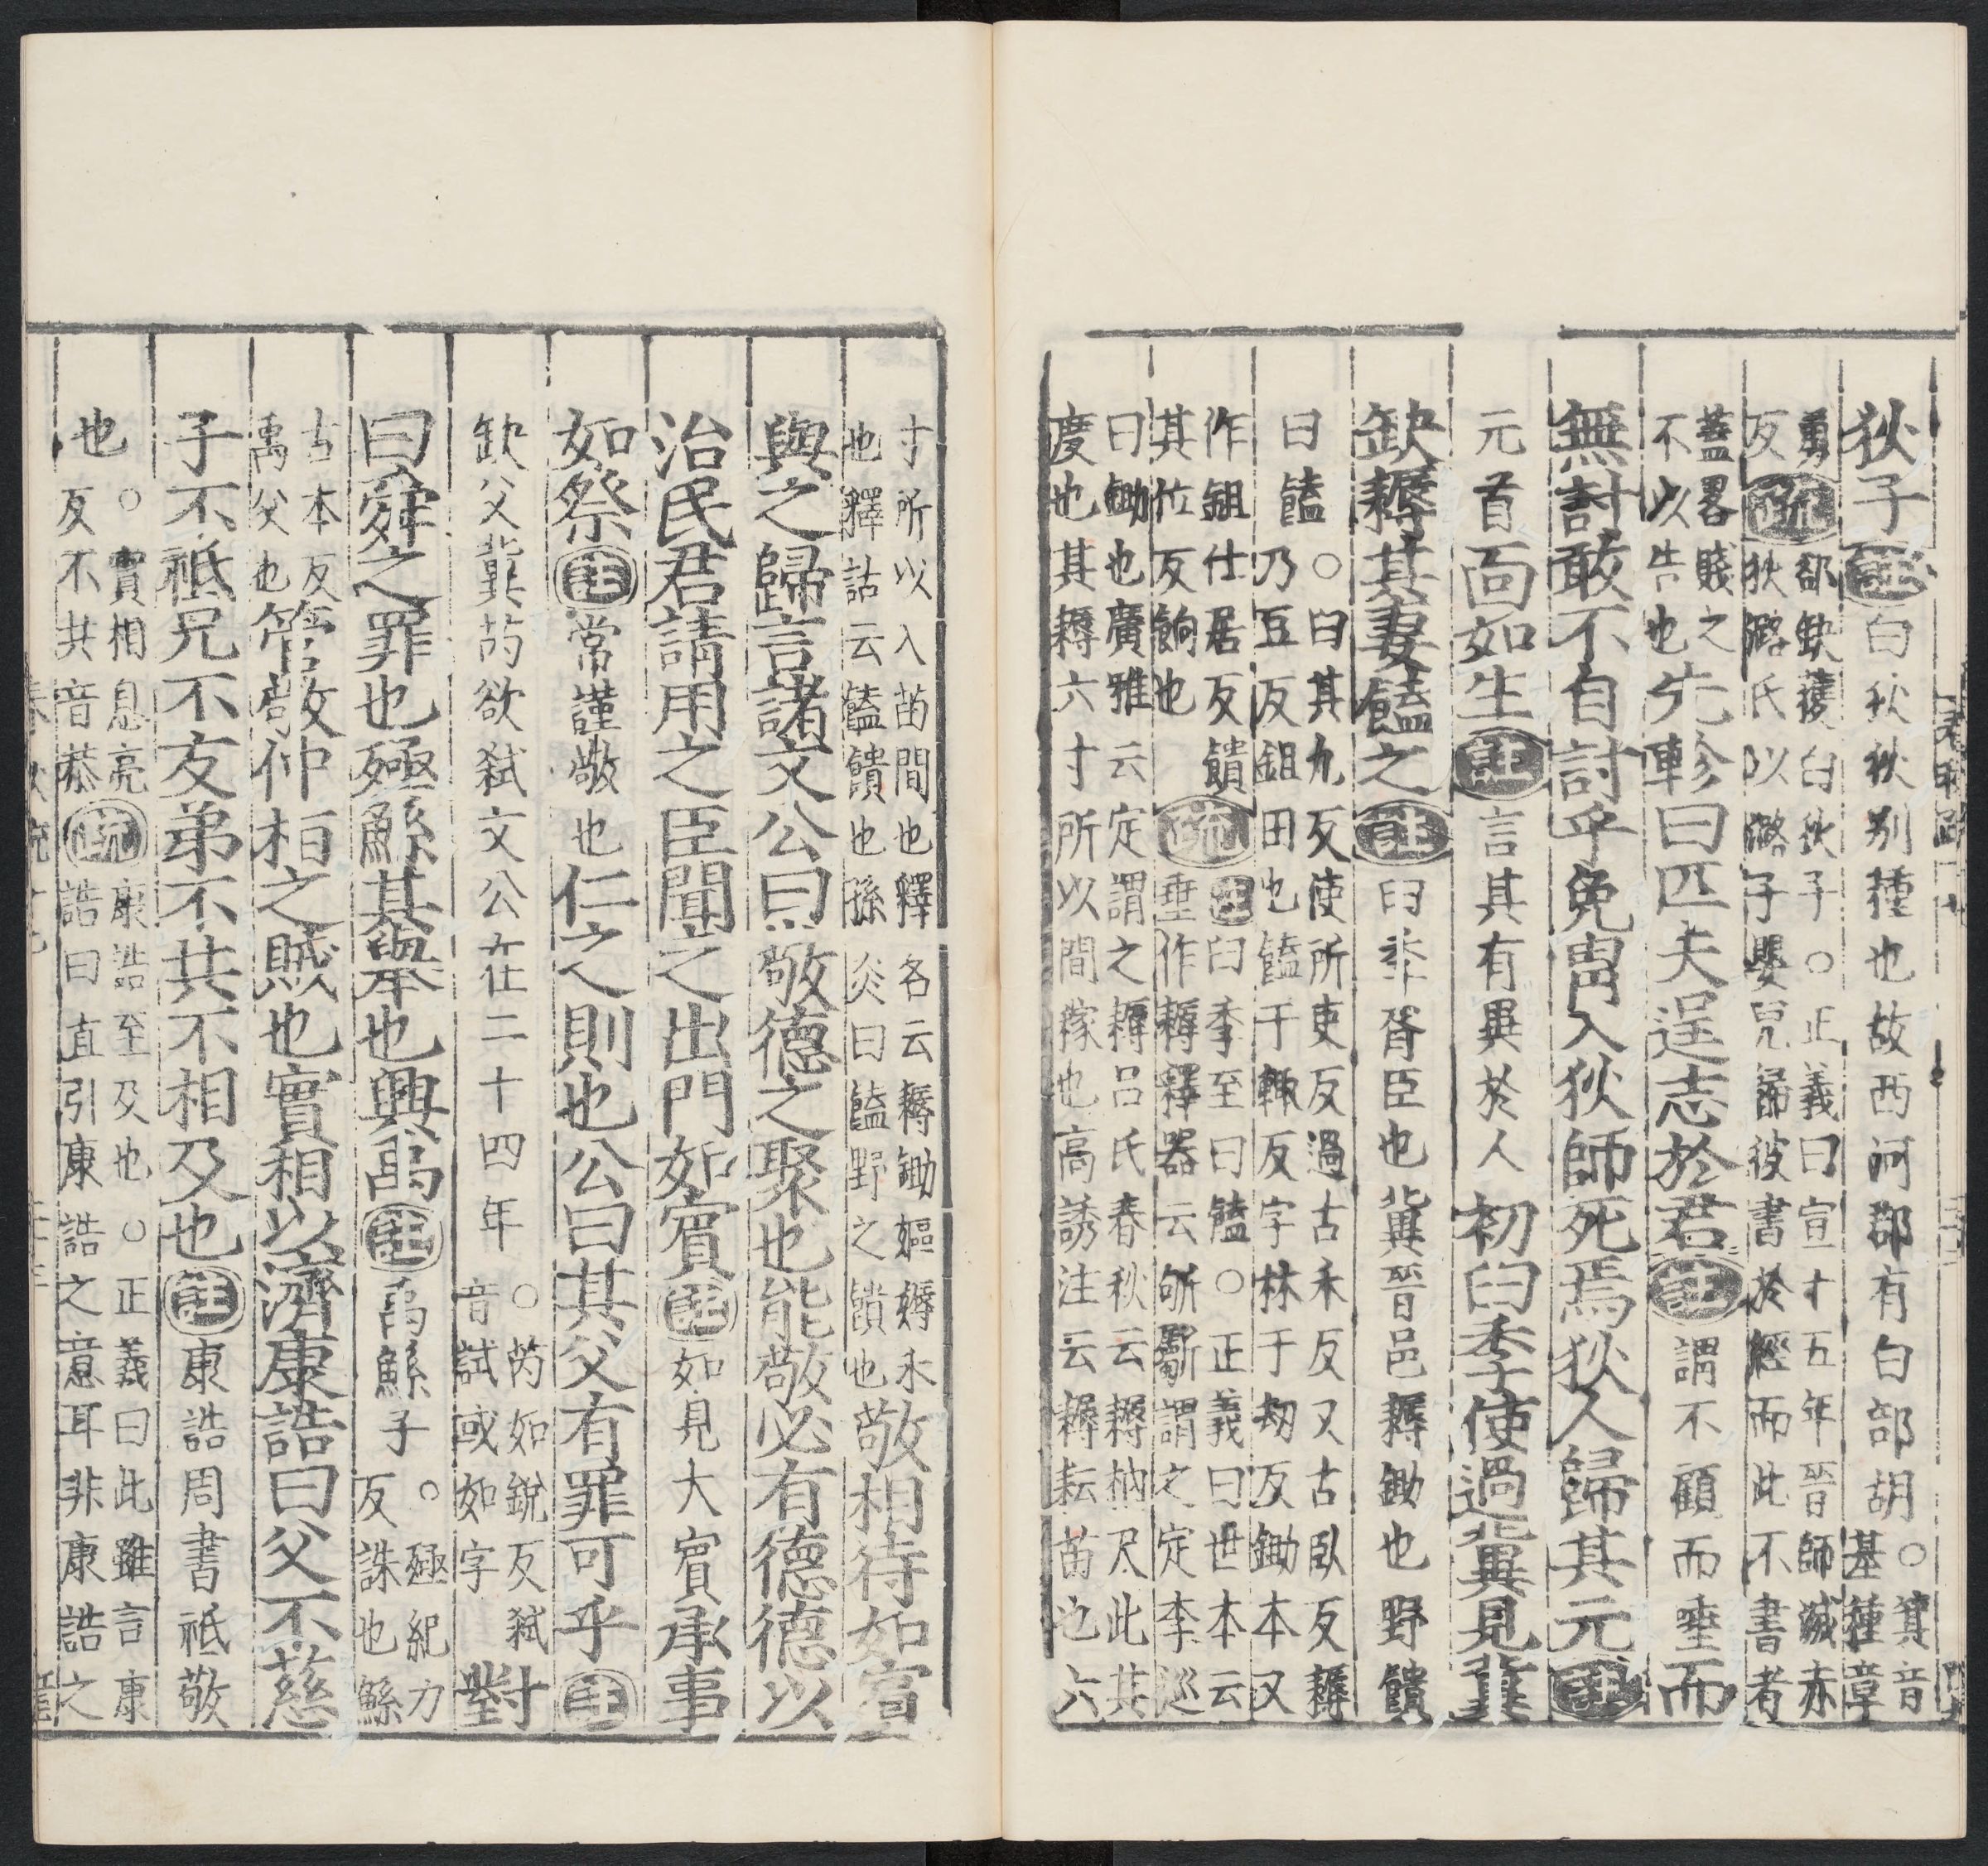 狄子註白狄狄别種也故西河郡有白部胡○箕音基種章
勇反疏郤缺獲白狄子○正義曰宣十五年晉師滅赤狄潞氏以潞子嬰兒歸彼書於經而此不書者
蓋畧賤之不以告也先軫曰匹夫逞志於君註謂不顧而唾而
無討敢不自討乎免冑入狄師死焉狄人歸其元註
元首面如生註言其有異於人初臼季使過冀見冀
缺耨其妻饁之註臼季胥臣也冀晉邑耨鋤也野饋
曰饁○臼其九反使所吏反過古禾反又古臥反耨乃豆反鉏田也饁于輒反字林于刼反鋤本又
作鉏仕居反饋其位反餉也疏註臼季至曰饁○正義曰世本云垂作耨釋器云斪斸謂之定李巡
曰鋤也廣雅云定謂之耨呂氏春秋云耨柄尺此其度也其耨六寸所以間稼也高誘注云耨耘苗也六
寸所以入苗間也釋名云耨鋤嫗耨禾也釋詁云饁饋也孫炎曰饁野之饋也敬相待如賓
與之歸言諸文公曰敬德之聚也能敬必有德德以
治民君請用之臣聞之出門如賓註如見大賓承事
如祭註常謹敬也仁之則也公曰其父有罪可乎註
缺父冀芮欲弒文公在二十四年○芮如銳反弒音試或如字對
曰舜之罪也殛鯀其舉也興禹註禹鯀子○殛紀力反誅也鯀
古本反禹父也管敬仲桓之賊也實相以濟康誥曰父不慈
子不祗兄不友弟不共不相及也註康誥周書祗敬
也○實相息亮反不共音恭疏康誥至及也○正義曰此雖言康誥曰直引康誥之意耳非康誥之